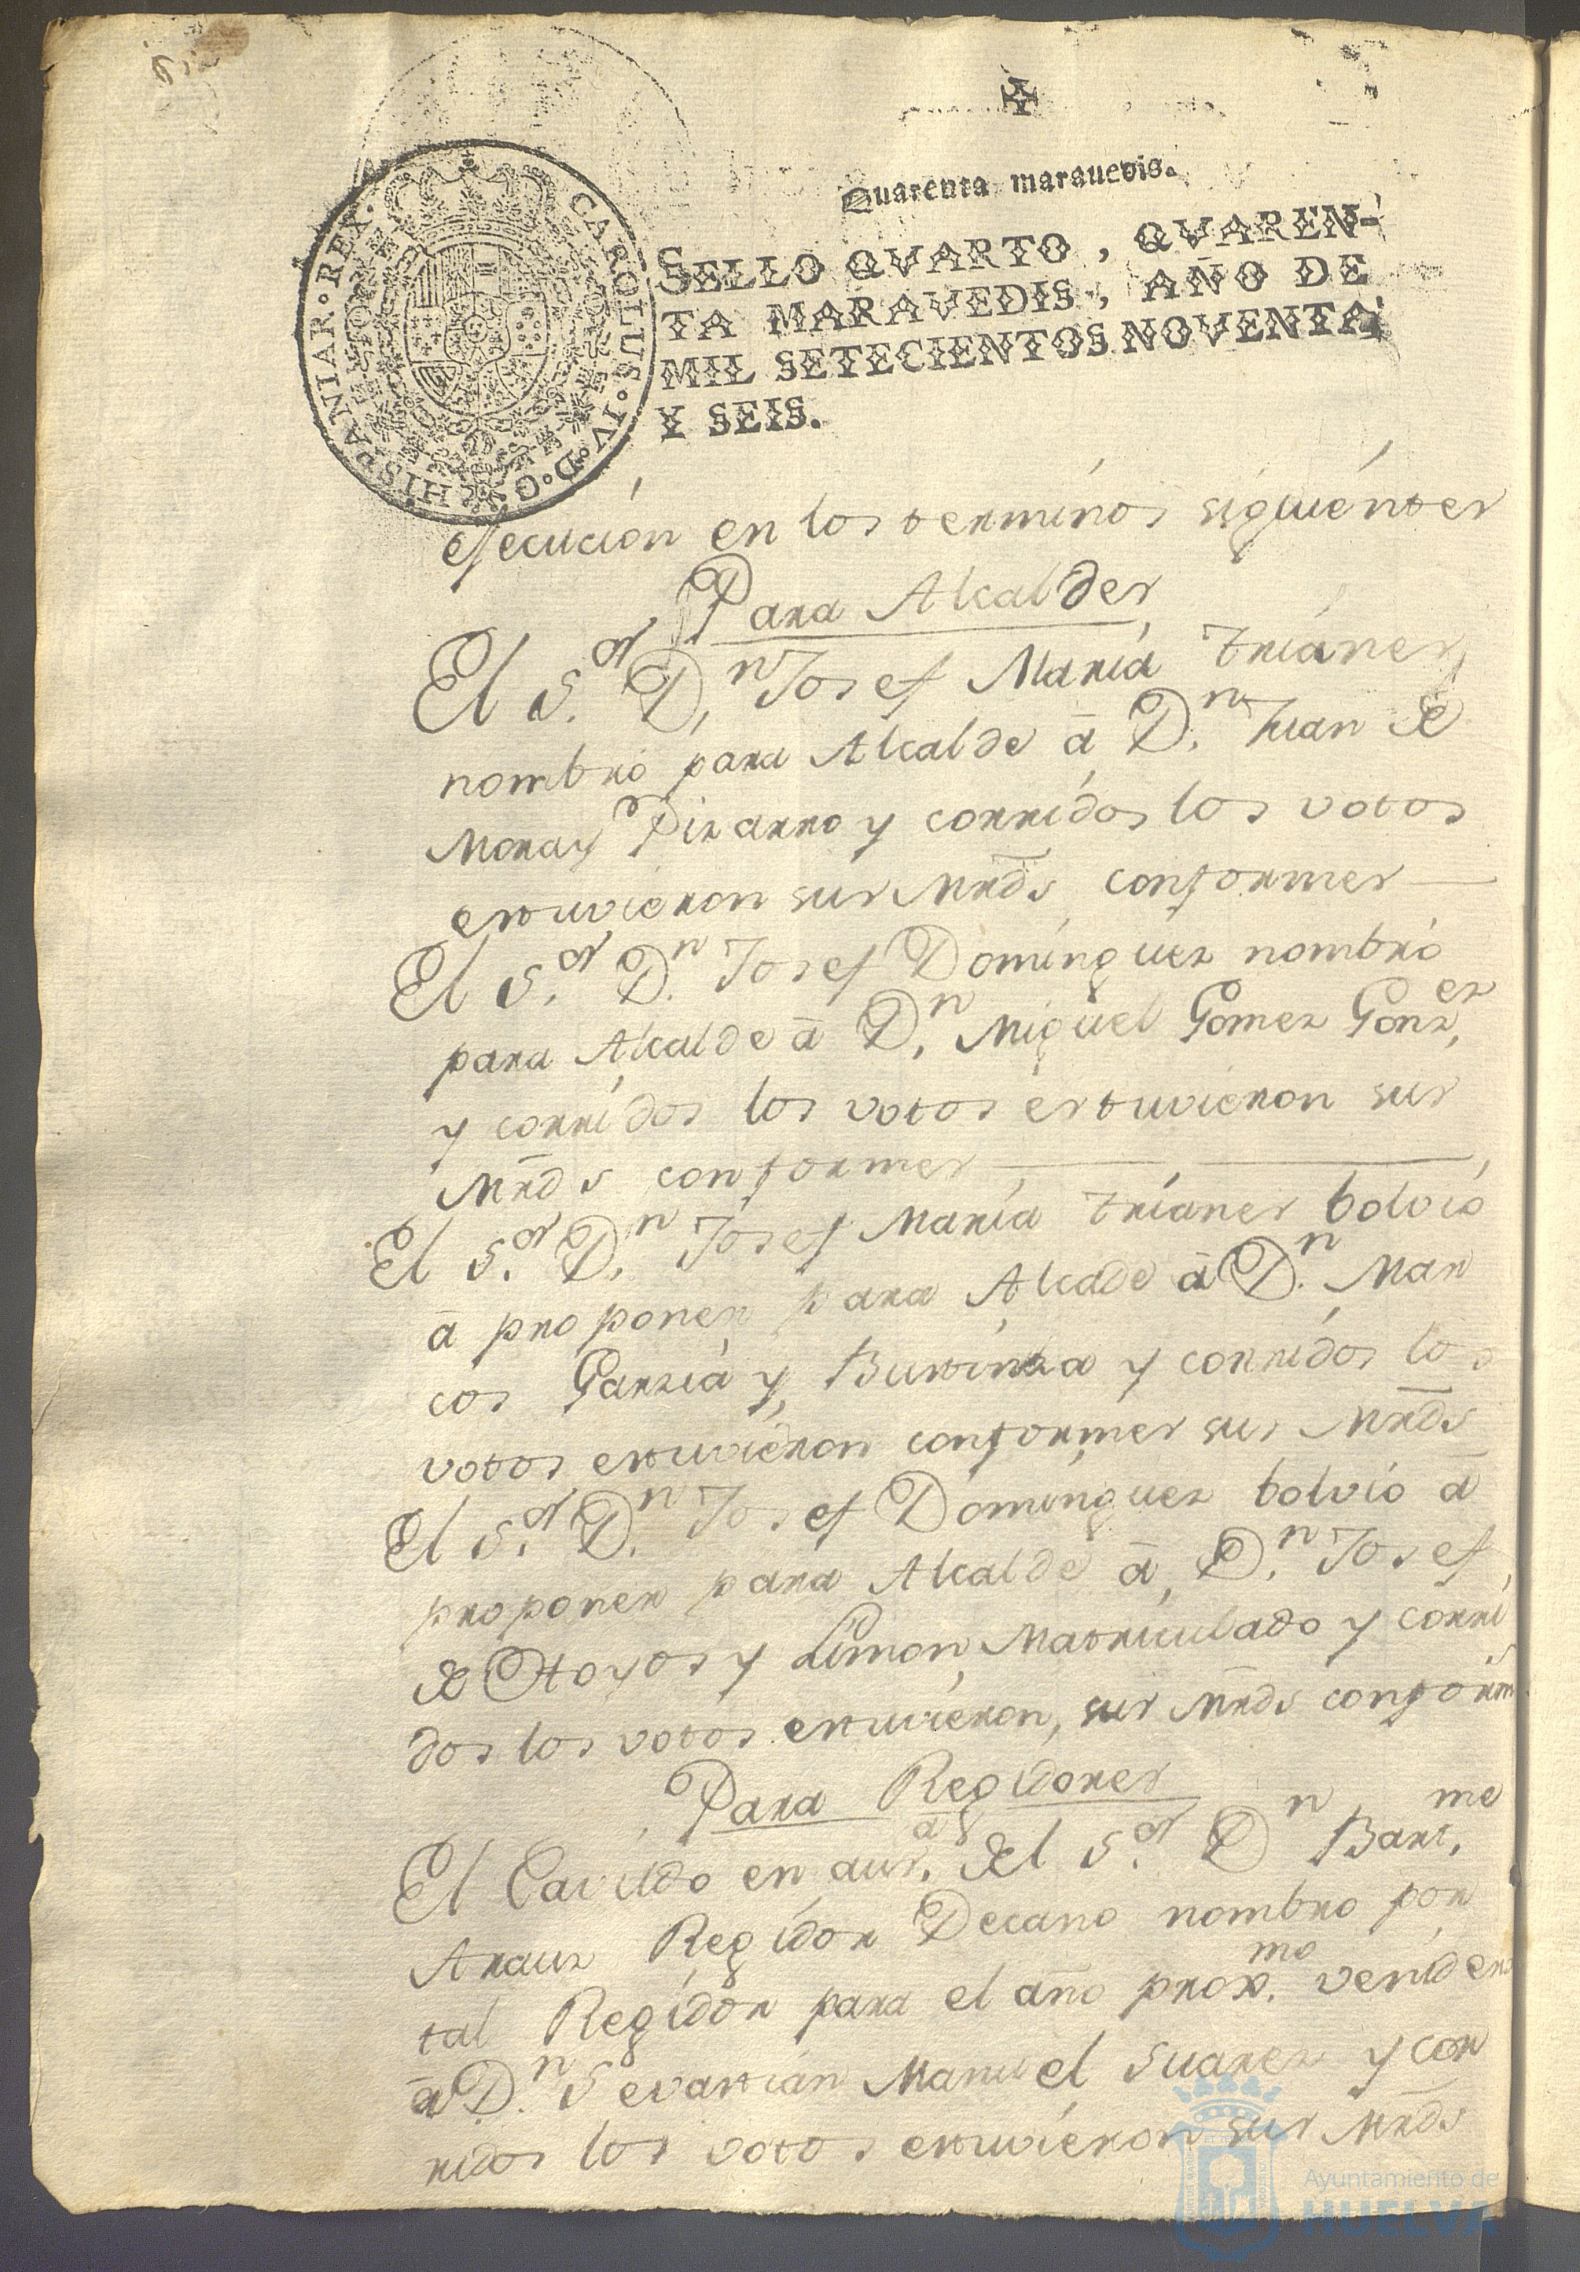 Quarenta marauedis.
SELLO QVARTO, QVAREN-
TA MARAVEDIS, AÑO DE
MIL SETECIENTOS NOVENTA
Y SEIS.
CAROLUS·IV·D·G·HISPANIAR·REX·
ejecución en los terminos siguientes
Para Alcaldes
El S.or D.n Josef María Trianes
nombró para Alcalde á D.n Juan de
Mora y Pizarro y corridos los votos
estuvieron sus Mrds conformes
El S.or D.n Josef Dominguez nombró
para Alcalde á D.n Miguel Gomez Gonz.ez
y corridos los votos estuvieron sus
Mrds conformes
El S.or D.n Josef María Trianes bolvió
á proponer para Alcade á D.n Mar
cos Garzia y y corridos los
votos estuvieron conformes sus Mrds
El S.or D.n Josef Dominguez bolvió á
proponer para Alcalde á D.n Josef
de Hoyos y Limon, Matriculado y corri
dos los votos estuvieron, sus Mrds conform
Para Regidores
El Cavildo en aus.a del S.or D.n Bart.me
Arauz Regidor Decano nombro por
tal Regidor para el año prox.mo venidero
á D.n Sevastian Manuel Suarez y cor
ridos los votos estuvieron sus Mrds
Ayuntamiento de
HUELVA